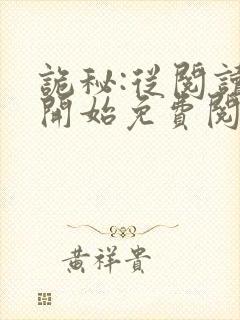 詭秘:從閱讀
開始免費閱
黃祥貴